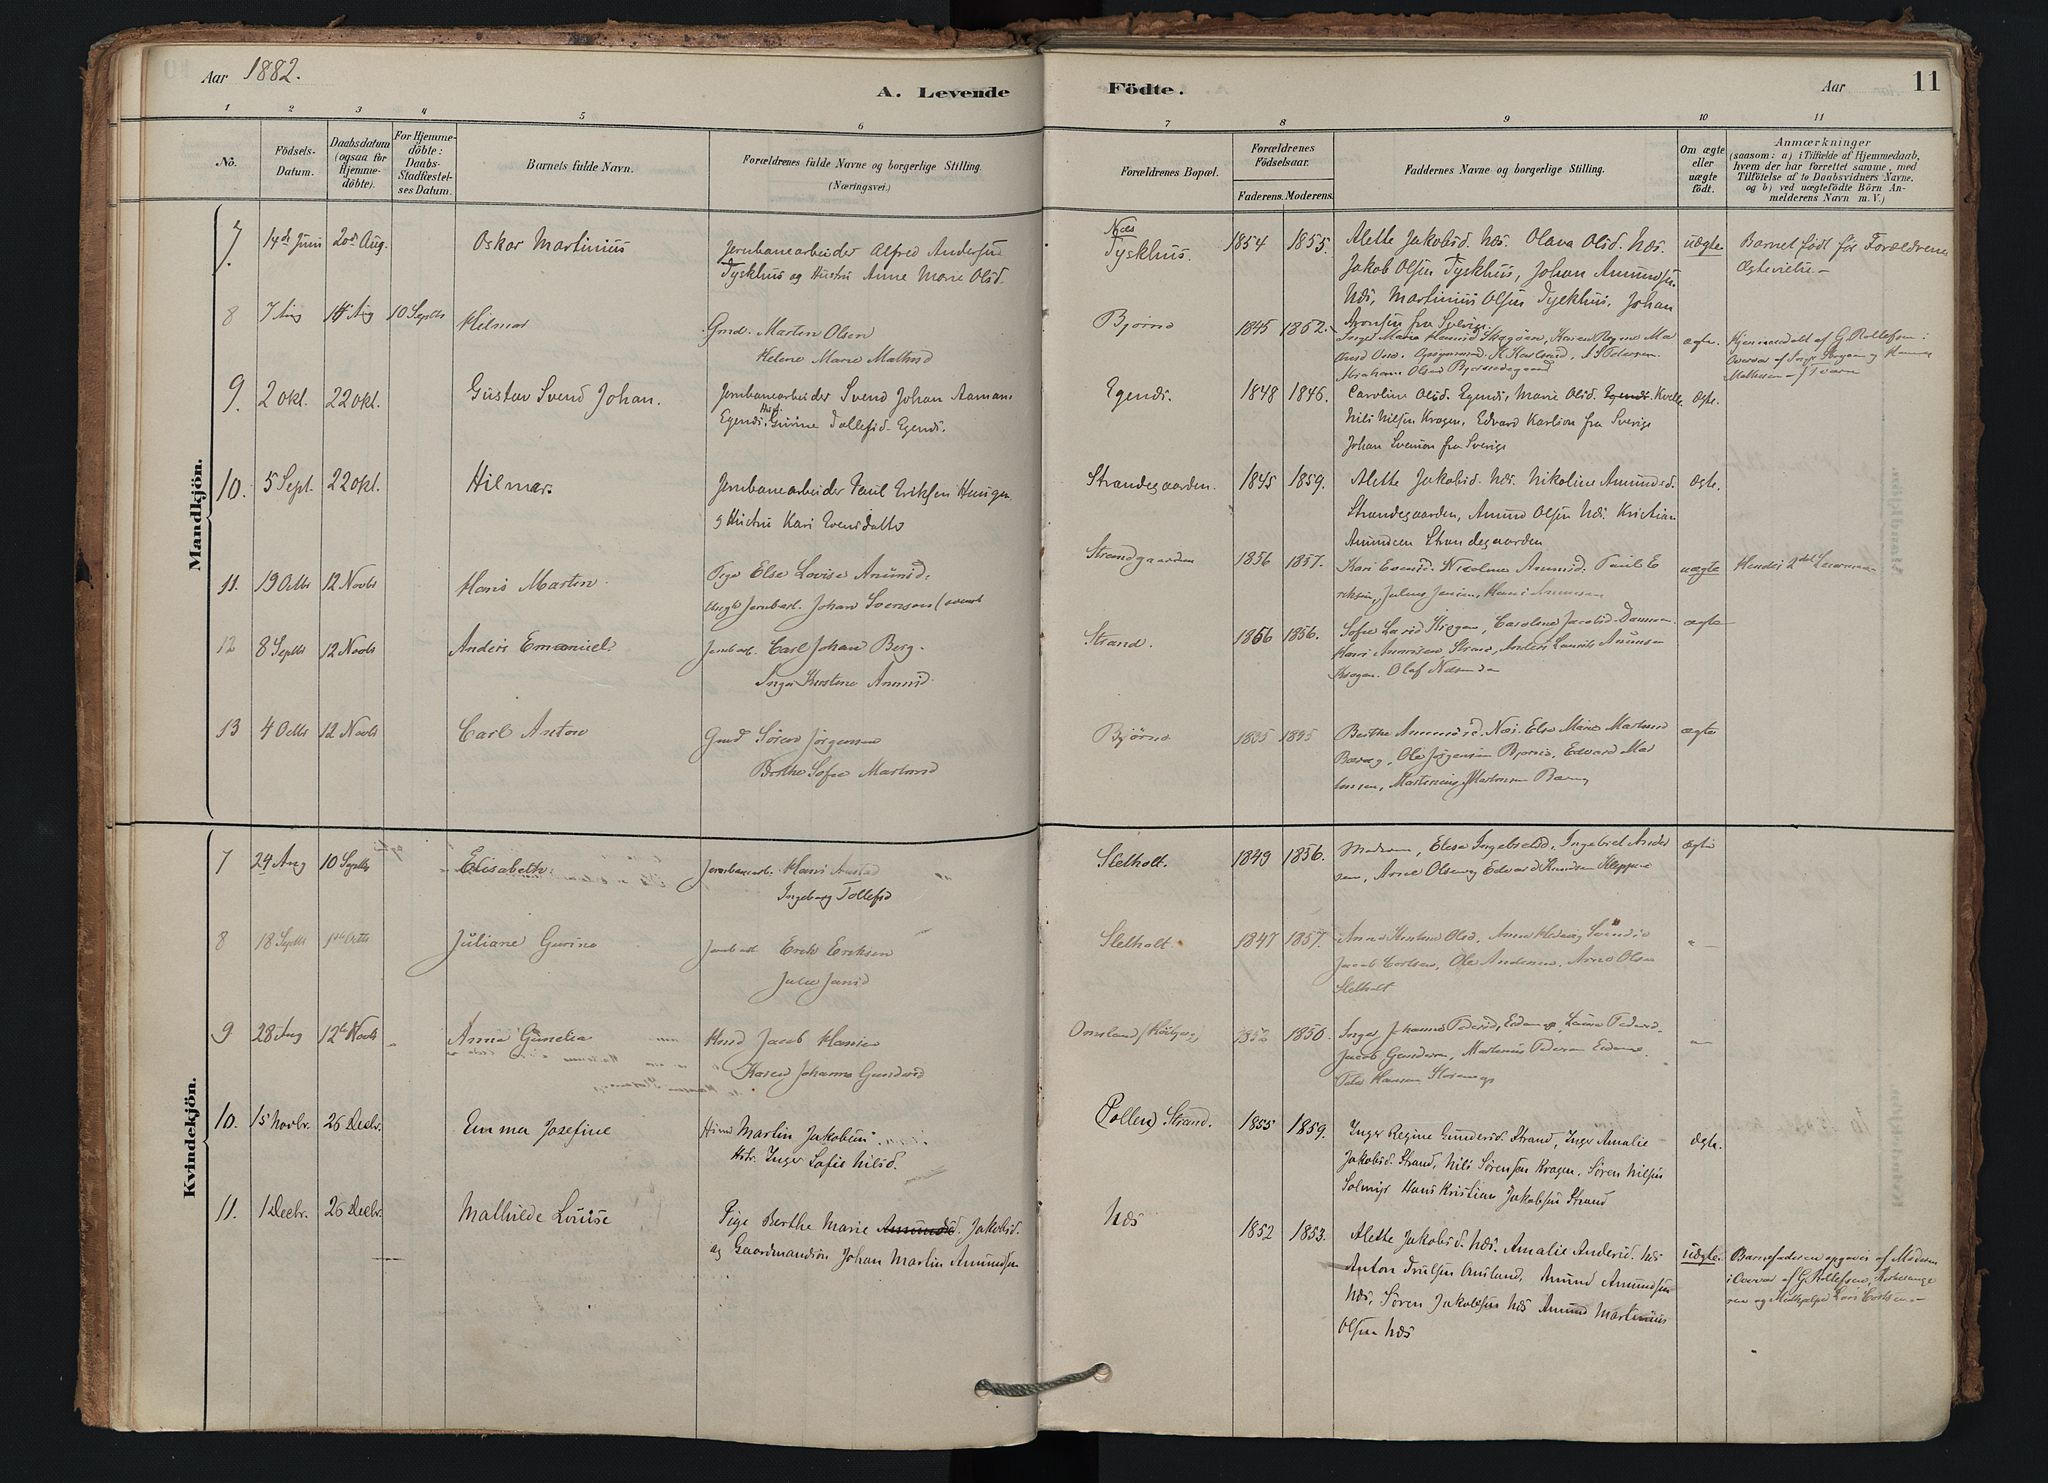 Aar 1882.
A. Levende
Födte.
Aar
11
1 2 3 4 5 6 7 8 9 10 11
No.
Födsels-
Datum.
Daabsdatum
(ogsaa for
Hjemme-
döbte).
For Hjemme-
döbte:
Daabs-
Stadfæstel-
ses Datum.
Barnets fulde Navn.
Forældrenes fulde Navne og borgerlige Stilling.
(Næringsvei.)
Forældrenes Bopæl.
Forældrenes
Födselsaar.
Faderens. Moderens.
Faddernes Navne og borgerlige Stilling.
Om ægte
eller
uægte
födt.
Anmærkninger
(saasom: a) i Tilfælde af Hjemmedaab,
hvem der har forrettet samme, med
Tilföielse af to Daabsvidners Navne.
og b) ved uægtefödte Börn An-
melderens Navn m. V.)
Mandkjön.
7. 14de Juni 20de Aug. Oskar Martinius
Jernbanearbeider Alfred Andersen
Tyskhus og Hustru Anne Marie Olsd.
Næs
Tyskhus. 1854 1855.
Alette Jakobsd. Næs. Olava Olsd. Næs.
Jakob Olsen Tyskhus, Johan Amundsen
Næs, Martinius Olsen Tyskhus, Johan
Aronsen fra Sverige.
uægte
Barnet født før Forældrene
Ægtevielse.
8 7 Aug 14 Aug 10 Septb Hilmar
Gmd. Martin Olsen
Helene Marie Mathisd
Bjørnø 1845 1852.
Abraham Olsen
ægte. Hjemmedøbt af G. Rollefsen
9. 2 okt. 22 okt. Gustav Svend Johan.
Jernbanearbeider Svend Johan Aaman
Egends. Hust. Gurine Tollefsd. Egends.
Egends. 1848 1846.
Caroline Olsd. Egends, Marie Olsd. Egends
Nils Nilsen Kragen, Edvard Karlson fra Sverige
Johan Svenson fra Sverige
Ægte.
10. 5 Sept. 22 okt. Hilmar.
Jernbanearbeider Paul Eriksen Haugen
g Hustru Kari Evensdatter
Strandegaarden. 1845 1859.
Alette Jakobsd. Næs. Nikoline Amundsd.
Strandegaarden, Amund Olsen Næs. Kristian
Amundsen Strandegaarden
Ægte.
11. 19 Octb 12 Novb Hans Martin
Pige Else Lovise Amunsd.
Ungk. Jernbarb. Johan Svensen (svensk
Strandgaarden 1856 1857.
Kari Evensd. Nicoline Amunsd. Paul E
riksen, Julius Jensen, Hans Amunsen
uægte Hendes 2det Leiermaal
12 8 Septb 12 Novb Anders Emanuel.
Jernbarb. Carl Johan Berg.
Inger Kirstine Amunsd.
Strand. 1856 1856.
Kragen. Olaf
ægte
13 4 Octb 12 Novb Carl Anton
Gmd Søren Jørgensen
Berthe Sofie Martinsd
Bjørnø 1835 1835
Berthe Amundsd. Næs. Else Marie Martinsd
Barvog, Ole Jørgensen Bjørnø, Edvard Mar
tinsen, Martinius Martinsen
ægte
Kvindekjön.
7 24 Aug 10 Septb Elisabeth
Jernbanearb. Hans Austad
Ingeborg Tollefsd
Sletholt. 1849 1856.
Moderen, Elise Ingebretsd, Ingebret Ander
sen, Arne Olsen og Edvard Knudsen Kleppene
ægte
8 18 Septb 1ste Octb Juliane Gurine
Jernbarb Erik Eriksen
Julie Jansd
Sletholt. 1847 1857.
Jacob Carlsen, Ole Andersen, Arne Olsen
Sletholt
9 28 Aug 12te Novb Anna Gunelia
Hmd Jacob Hansen
Karen Johanne Gundersd
Omsland 1852 1850.
Inger Johanne Pedersd,
Jacob Gundersen, Martinius Pedersen
Peder Hansen
10. 15 Novbr. 26 Decbr. Emma Josefine
Hmd Martin Jakobsen
Hstr. Inger Sofie Nilsd.
(Pollen) Strand. 1855 1859.
Inger Regine Gundersd. Strand, Inger Amalie
Jakobsd. Strand, Nils Sørensen Kragen, Søren Nilsen
Solmyr Hans Kristian Jakobsen Strand
Ægte.
11. 1 Decbr. 26 Decbr. Mathilde Louise
Pige Berthe Marie Amundsd. Jakobsd.
og Gaardmandsøn Johan Martin Amundsen
Næs 1852 1853.
Alette Jakobsd. Næs. Amalie Andersd. Næs
Anton Trulsen Omsland, Amund Amundsen
Næs, Søren Jakobsen Næs Amund Martinius
Olsen Næs
uægte.
Barnefaderen opgaves af Moderen
i Overvær af G. Rollefsen, Kirkesange
ren og Medhjælper Lars